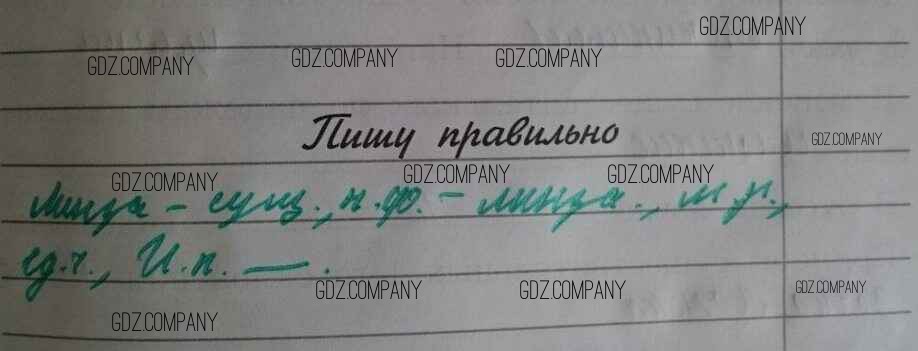 GDZ.COMPANY
GDZ.COMPANY GDZ.COMPANY GDZ.COMPANY
Пишу правильно
GDZ.COMPANY
GDZ.COMPANY GDZ.COMPANY GDZ.COMPANY
Линза – сущ., н.ф. – линза., м.р.,
ед.ч., И.п. — .
GDZ.COMPANY GDZ.COMPANY GDZ.COMPANY
GDZ.COMPANY